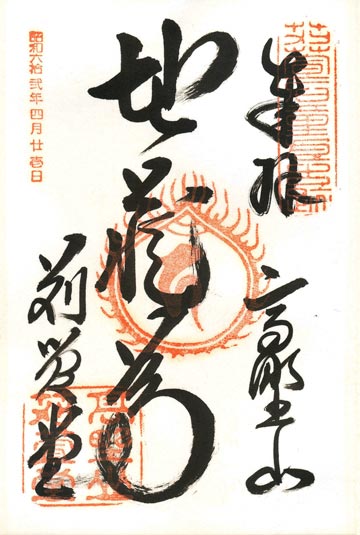 奉拝
高野山
地蔵尊
苅萱堂
昭和六拾弐年四月廿壱日